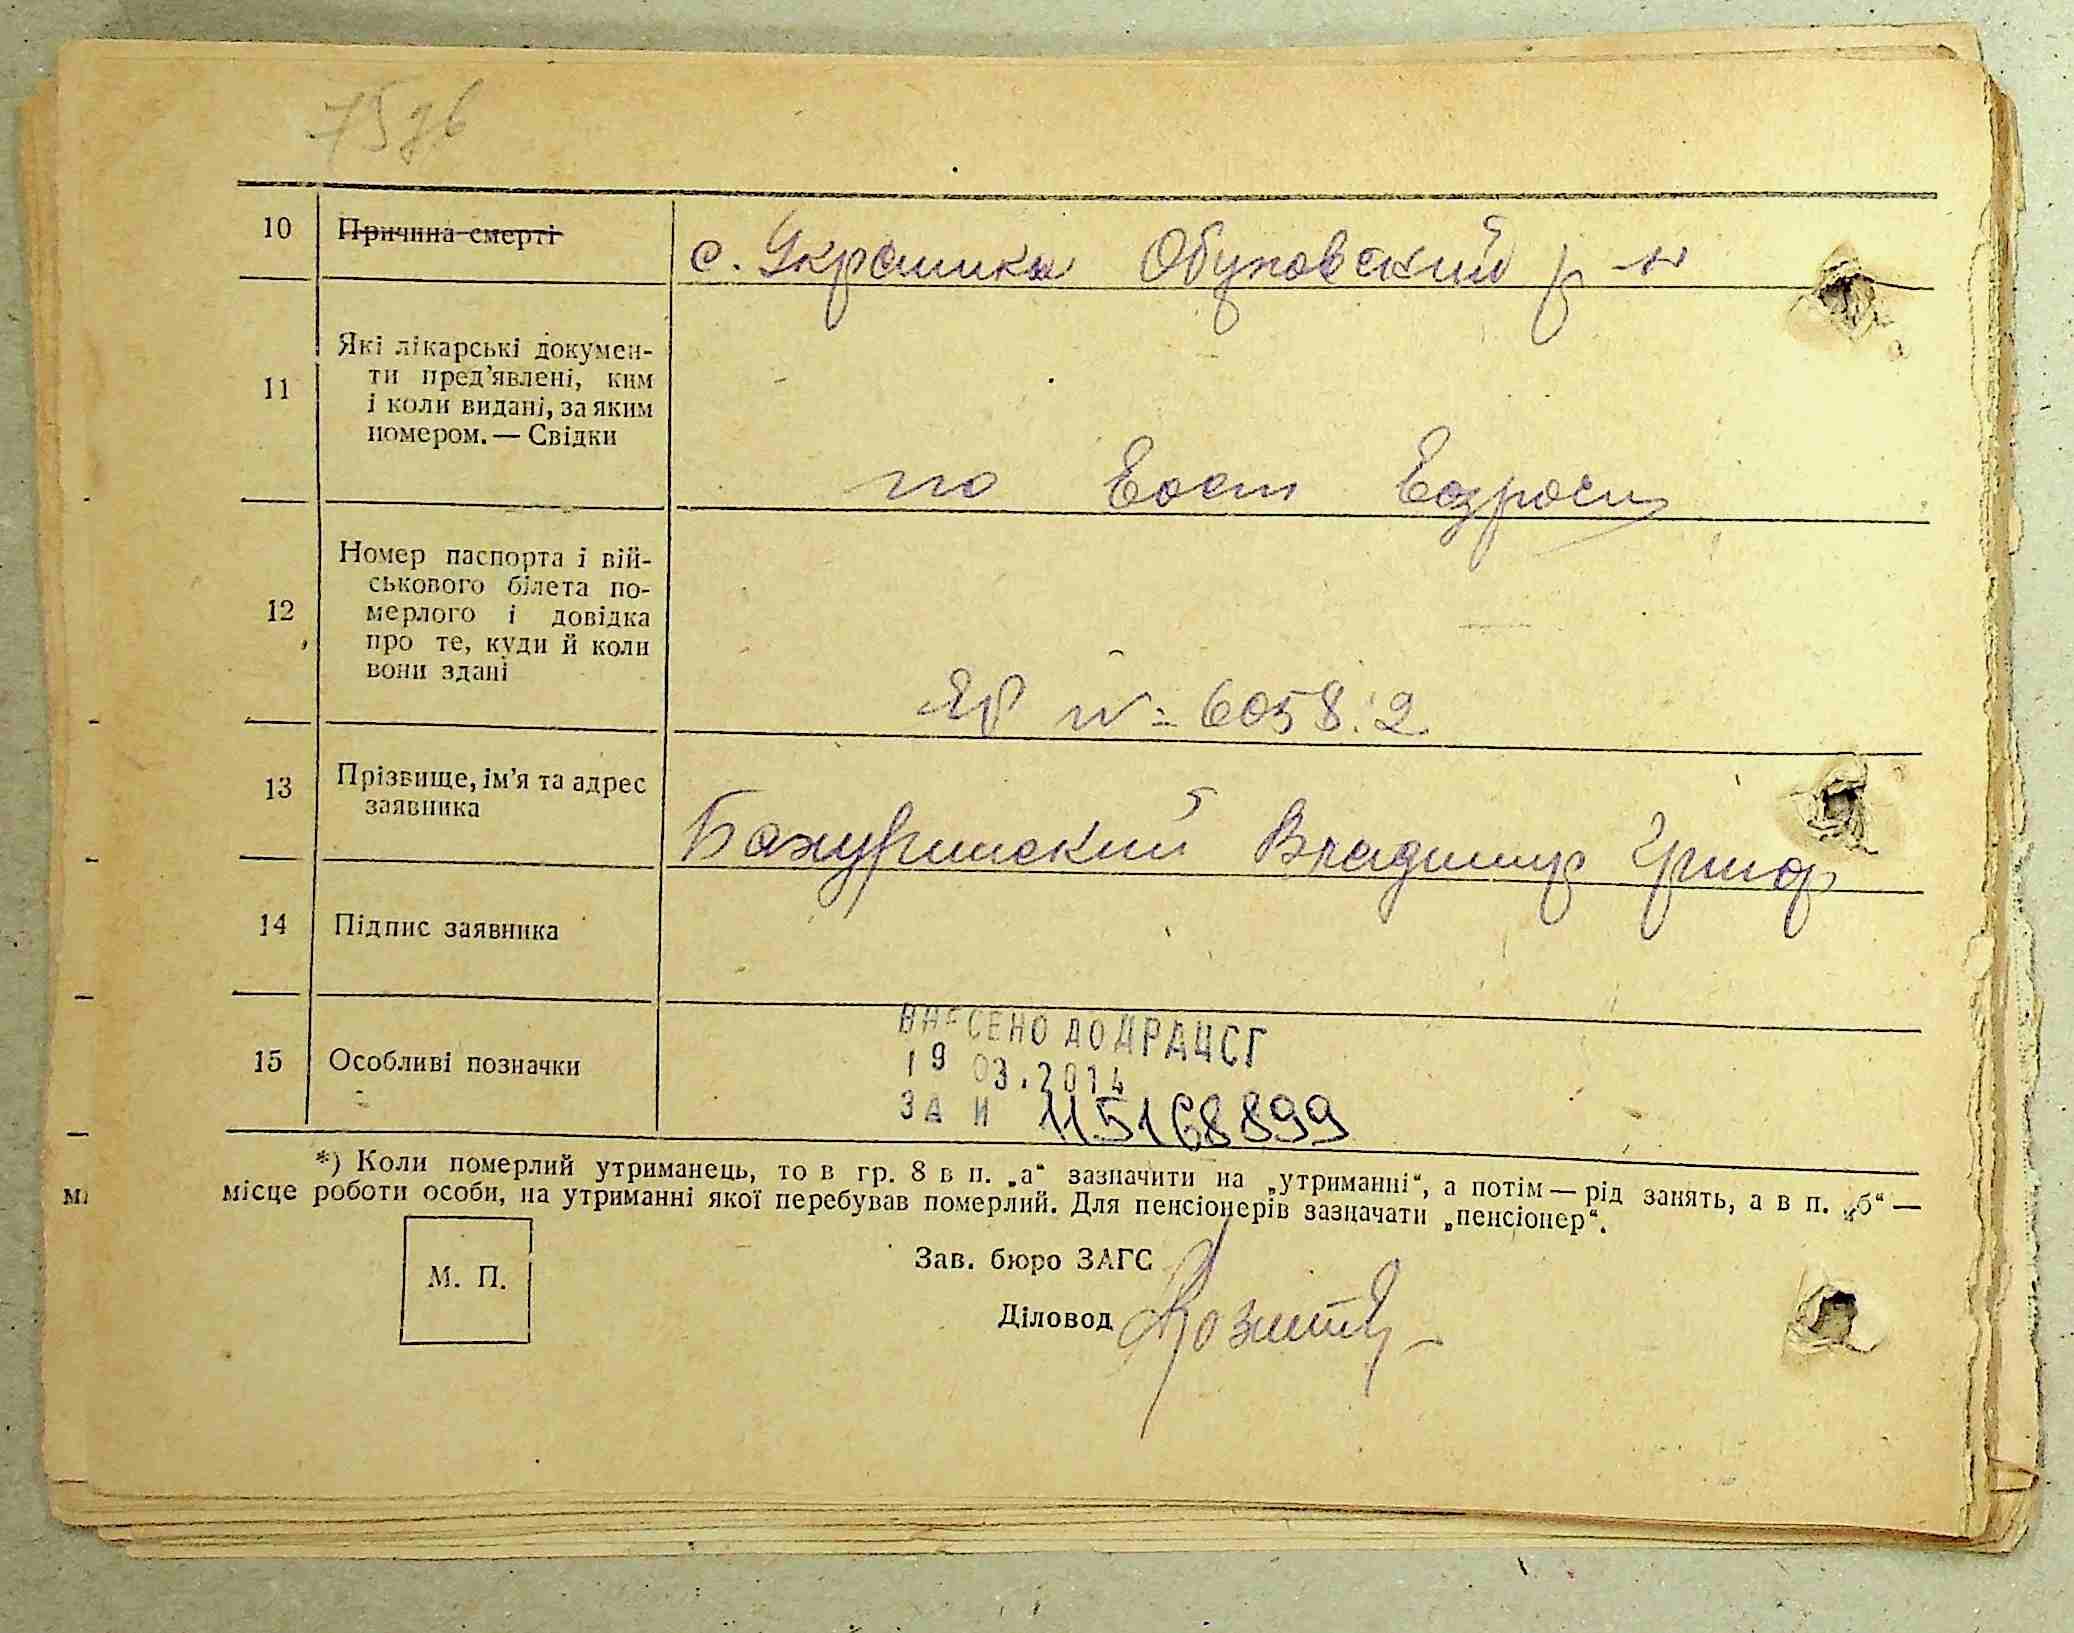 10 Причина смерті с. Украинка Обуховский р-н
11 Які лікарські докумен-
ти пред'явлені, ким
і коли видані, за яким
номером. — Свідки
по Вост Возрост
12 Номер паспорта і вій-
ськового білета по-
мерлого і довідка
про те, куди й коли
вони здані
№ 6058.2
13 Прізвище, ім'я та адрес
заявника
Владимир Григор
14 Підпис заявника
15 Особливі позначки
ВНЕСЕНО ДО ДРАЦСГ
19 03.2014
ЗА N 115168899
*) Коли померлий утриманець, то в гр. 8 в п. „а“ зазначити на „утриманні“, а потім — рід занять, а в п. „б“ —
місце роботи особи, на утриманні якої перебував померлий. Для пенсіонерів зазначати „пенсіонер“.
М. П.
Зав. бюро ЗАГС
Діловод